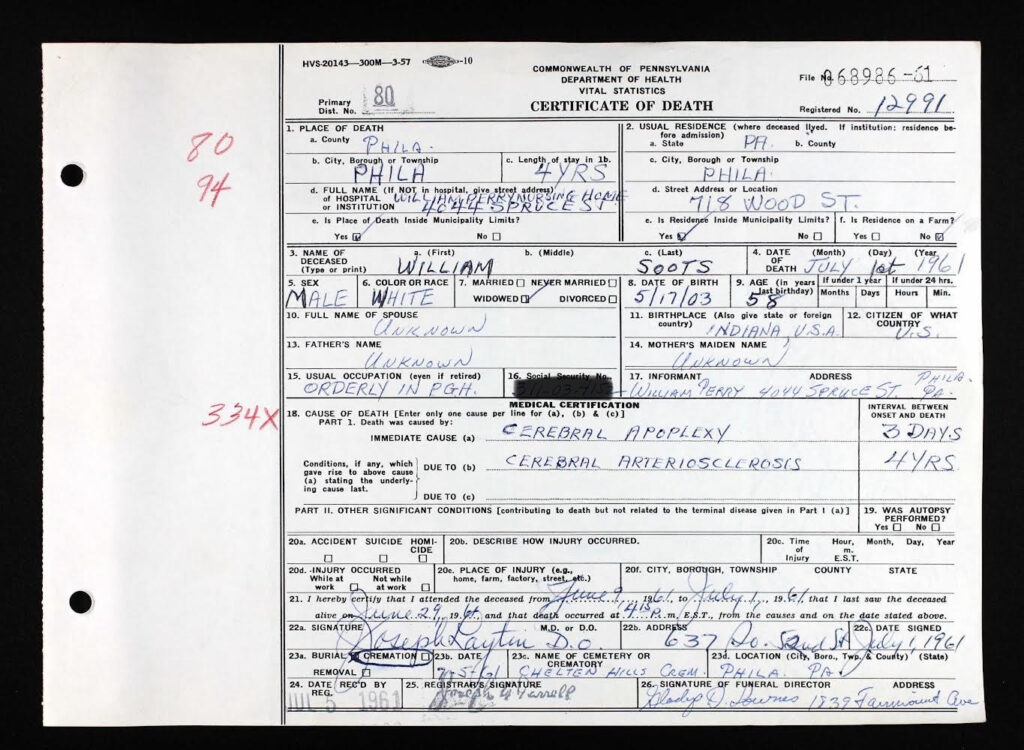 HVS-20143—300M—3-57 -10
COMMONWEALTH OF PENNSYLVANIA
DEPARTMENT OF HEALTH
VITAL STATISTICS
CERTIFICATE OF DEATH
File No. 068986-61
Primary Dist. No. 80
Registered No. 12991
80
94
1. PLACE OF DEATH
a. County PHILA.
b. City, Borough or Township PHILA
c. Length of stay in 1b. 4 YRS
d. FULL NAME (If NOT in hospital, give street address) OF HOSPITAL OR INSTITUTION WILLIAM PERRY NURSING HOME
4044 SPRUCE ST
e. Is Place of Death Inside Municipality Limits?
Yes No
2. USUAL RESIDENCE (where deceased lived. If institution: residence before admission)
a. State PA. b. County
c. City, Borough or Township
PHILA.
d. Street Address or Location
718 WOOD ST.
e. Is Residence Inside Municipality Limits? f. Is Residence on a Farm?
Yes No Yes No
3. NAME OF DECEASED (Type or print) a. (First) b. (Middle) c. (Last)
WILLIAM SOOTS
4. DATE OF DEATH (Month) (Day) (Year)
JULY 1st 1961
5. SEX MALE
6. COLOR OR RACE WHITE
7. MARRIED NEVER MARRIED
WIDOWED DIVORCED
8. DATE OF BIRTH 5/17/03
9. AGE (in years last birthday) 58
If under 1 year If under 24 hrs.
Months Days Hours Min.
10. FULL NAME OF SPOUSE
UNKNOWN
11. BIRTHPLACE (Also give state or foreign country) INDIANA, U.S.A.
12. CITIZEN OF WHAT COUNTRY U.S.
13. FATHER'S NAME
UNKNOWN
14. MOTHER'S MAIDEN NAME
UNKNOWN
15. USUAL OCCUPATION (even if retired)
ORDERLY IN PGH.
16. Social Security No.
17. INFORMANT ADDRESS
WILLIAM PERRY 4044 SPRUCE ST. PHILA. PA.
334X
MEDICAL CERTIFICATION
18. CAUSE OF DEATH [Enter only one cause per line for (a), (b) & (c)]
PART 1. Death was caused by:
INTERVAL BETWEEN ONSET AND DEATH
IMMEDIATE CAUSE (a) CEREBRAL APOPLEXY 3 DAYS
Conditions, if any, which gave rise to above cause (a) stating the underlying cause last.
DUE TO (b) CEREBRAL ARTERIOSCLEROSIS 4 YRS
DUE TO (c)
PART II. OTHER SIGNIFICANT CONDITIONS [contributing to death but not related to the terminal disease given in Part I (a)]
19. WAS AUTOPSY PERFORMED?
Yes No
20a. ACCIDENT SUICIDE HOMICIDE
20b. DESCRIBE HOW INJURY OCCURRED.
20c. Time of Injury Hour, m. E.S.T. Month, Day, Year
20d. INJURY OCCURRED
While at work Not while at work
20e. PLACE OF INJURY (e.g., home, farm, factory, street, etc.)
20f. CITY, BOROUGH, TOWNSHIP COUNTY STATE
21. I hereby certify that I attended the deceased from June 9, 1961, to July 1, 1961 that I last saw the deceased
alive on June 29, 1961 and that death occurred at m., E.S.T., from the causes and on the date stated above.
22a. SIGNATURE M.D. or D.O. Joseph Laytin D.O
22b. ADDRESS 637 So. 52nd St
22c. DATE SIGNED July 1, 1961
23a. BURIAL CREMATION
REMOVAL
23b. DATE
23c. NAME OF CEMETERY OR CREMATORY
CHELTEN HILLS CREM.
23d. LOCATION (City, Boro, Twp. & County) (State)
PHILA. PA.
24. DATE REC'D BY REG. JUL 5 1961
25. REGISTRAR'S SIGNATURE
26. SIGNATURE OF FUNERAL DIRECTOR ADDRESS
Gladys D. Downes 1839 Fairmount Ave